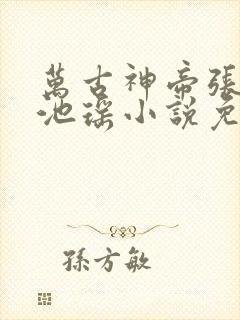 萬古神帝張
池瑤小說免
孫方敏